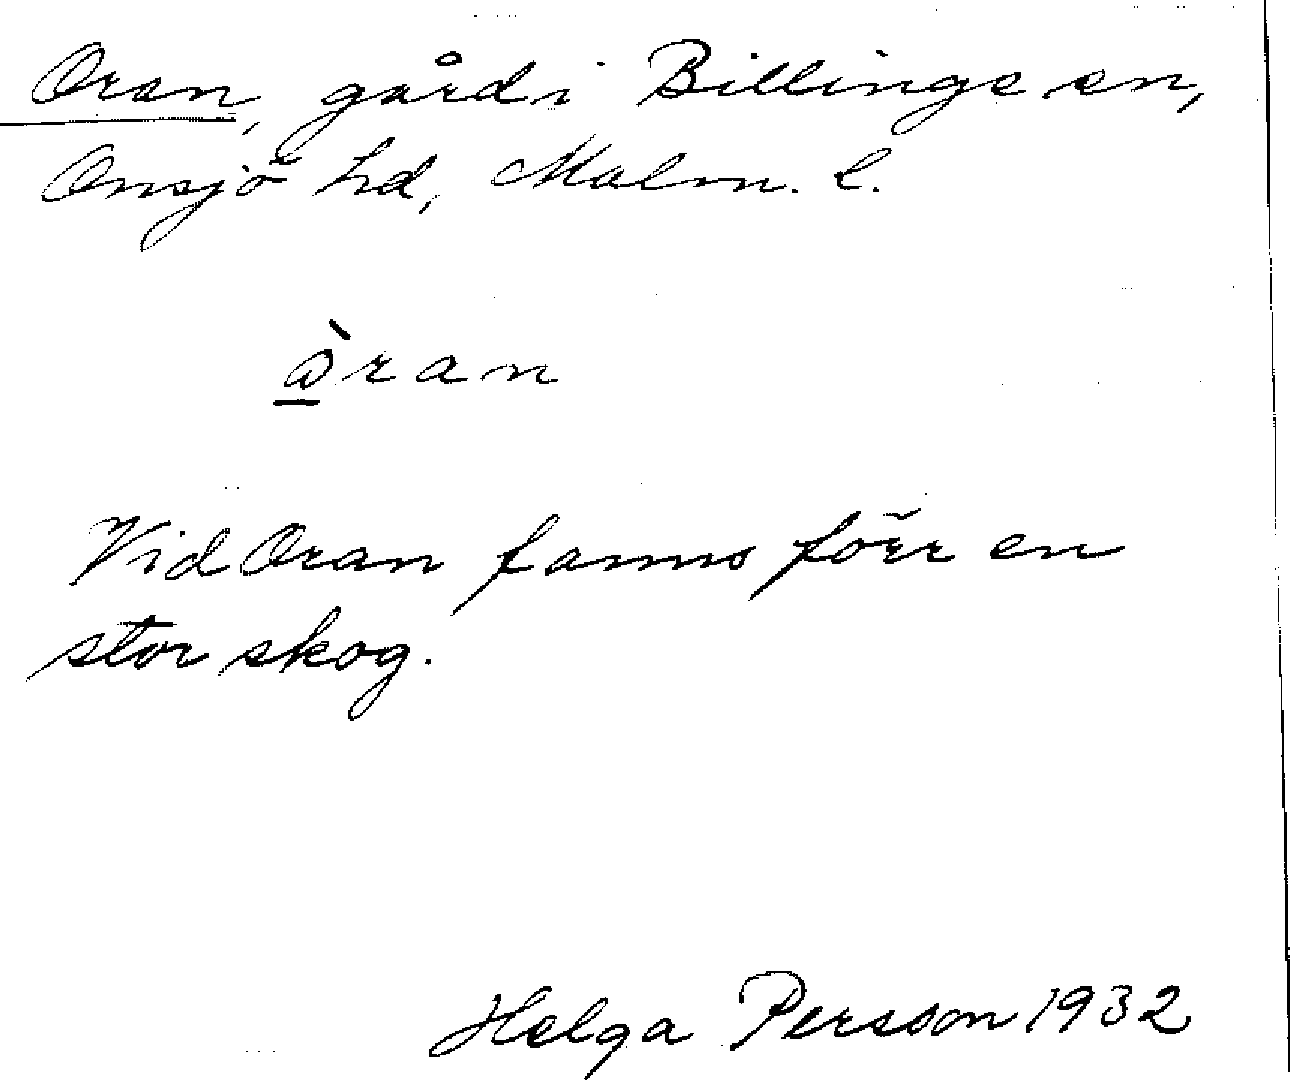 Oran, gård i Billinge sn,
Onsjö hd, Malm. l.
ὼ̲ran
Vid Oran fanns förr en
stor skog.
Helga Persson 1932